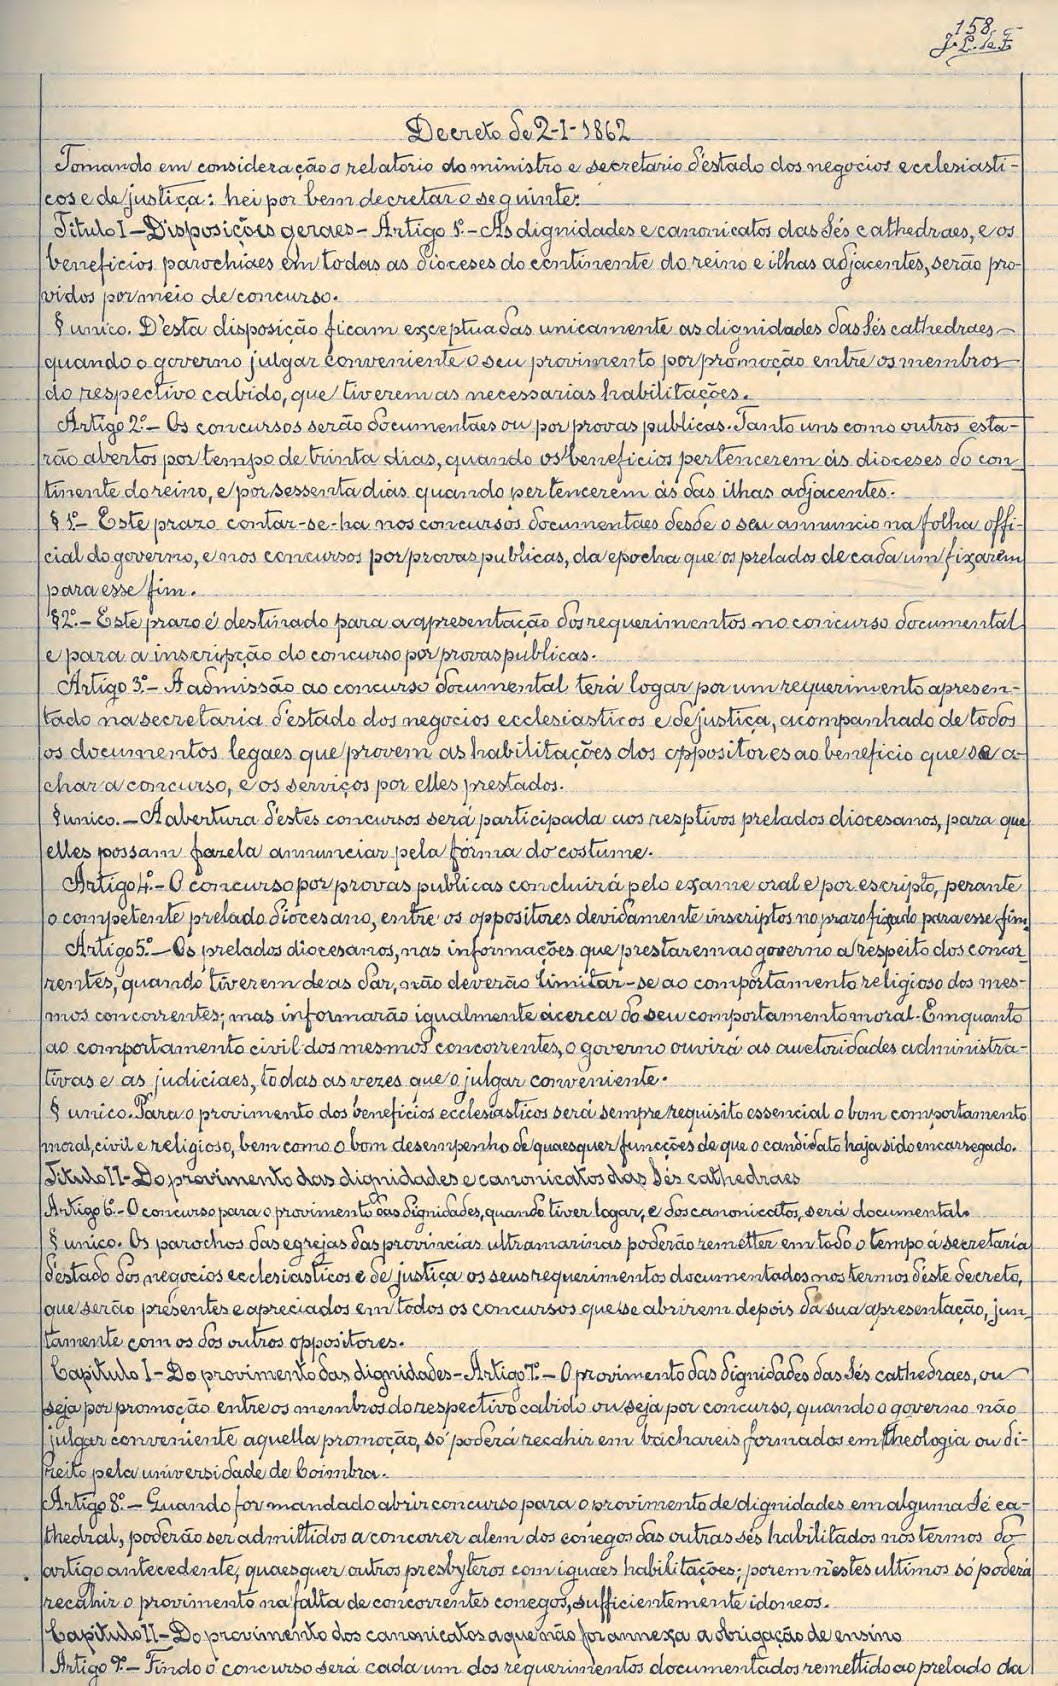 158
J. P. de F.
Decreto de 2-I-1862
Tomando em consideração o relatorio do ministro e secretario d'estado dos negocios ecclesiasti-
cos e de justiça: hei por bem decretar o seguinte:
Titulo I - Disposições geraes - Artigo 1º. - As dignidades e canonicatos das Sés cathedraes, e os
beneficios parochiaes em todas as dioceses do continente do reino e ilhas adjacentes, serão pro-
vidos por meio de concurso.
§ unico. D'esta disposição ficam exceptuadas unicamente as dignidades das Sés cathedraes
quando o governo julgar conveniente o seu provimento por promoção entre os membros
do respectivo cabido, que tiverem as necessarias habilitações.
Artigo 2º. - Os concursos serão documentaes ou por provas publicas. Tanto uns como outros esta-
rão abertos por tempo de trinta dias, quando os beneficios pertencerem ás dioceses do con-
tinente do reino, e por sessenta dias quando pertencerem ás das ilhas adjacentes.
§ 1º. - Este prazo contar-se-ha nos concursos documentaes desde o seu annuncio na folha offi-
cial do governo, e nos concursos por provas publicas, da epocha que os prelados de cada um fixarem
para esse fim.
§ 2º. - Este prazo é destinado para a apresentação dos requerimentos no concurso documental
e para a inscripção do concurso por provas publicas.
Artigo 3º. - A admissão ao concurso documental terá logar por um requerimento apresen-
tado na secretaria d'estado dos negocios ecclesiasticos e de justiça, acompanhado de todos
os documentos legaes que provem as habilitações dos oppositores ao beneficio que se a-
char a concurso, e os serviços por elles prestados.
§ unico. - A abertura d'estes concursos será participada aos resptivos prelados diocesanos, para que
elles possam fazela annunciar pela fórma do costume.
Artigo 4º. - O concurso por provas publicas concluirá pelo exame oral e por escripto, perante
o competente prelado diocesano, entre os oppositores devidamente inscriptos no prazo fixado para esse fim.
Artigo 5º. - Os prelados diocesanos, nas informações que prestarem ao governo a respeito dos concor-
rentes, quando tiverem de as dar, não deverão limitar-se ao comportamento religioso dos mes-
mos concorrentes; mas informarão igualmente ácerca do seu comportamento moral. Emquanto
ao comportamento civil dos mesmos concorrentes, o governo ouvirá as auctoridades administra-
tivas e as judiciaes, todas as vezes que o julgar conveniente.
§ unico. Para o provimento dos beneficios ecclesiasticos será sempre requisito essencial o bom comportamento
moral, civil e religioso, bem como o bom desempenho de quaesquer funcções de que o candidato haja sido encarregado.
Titulo II - Do provimento das dignidades e canonicatos das Sés cathedraes
Artigo 6º. - O concurso para o provimento das dignidades, quando tiver logar, e dos canonicatos, será documental.
§ unico. Os parochos das egrejas das provincias ultramarinas poderão remetter em todo o tempo á secretaria
d'estado dos negocios ecclesiasticos e de justiça os seus requerimentos documentados nos termos d'este decreto,
que serão presentes e apreciados em todos os concursos que se abrirem depois da sua apresentação, jun-
tamente com os dos outros oppositores.
Capitulo I - Do provimento das dignidades - Artigo 7º. - O provimento das dignidades das Sés cathedraes, ou
seja por promoção entre os membros do respectivo cabido ou seja por concurso, quando o governo não
julgar conveniente aquella promoção, só poderá recahir em bachareis formados em theologia ou di-
reito pela universidade de Coimbra.
Artigo 8º. - Quando for mandado abrir concurso para o provimento de dignidades em alguma Sé ca-
thedral, poderão ser admittidos a concorrer alem dos conegos das outras sés habilitados nos termos do
artigo antecedente, quaesquer outros presbyteros com iguaes habilitações; porem n'estes ultimos só poderá
recahir o provimento na falta de concorrentes conegos, sufficientemente idoneos.
Capitulo II - Do provimento dos canonicatos a que não for annexa a obrigação de ensino
Artigo 9º. - Findo o concurso será cada um dos requerimentos documentados remettido ao prelado da